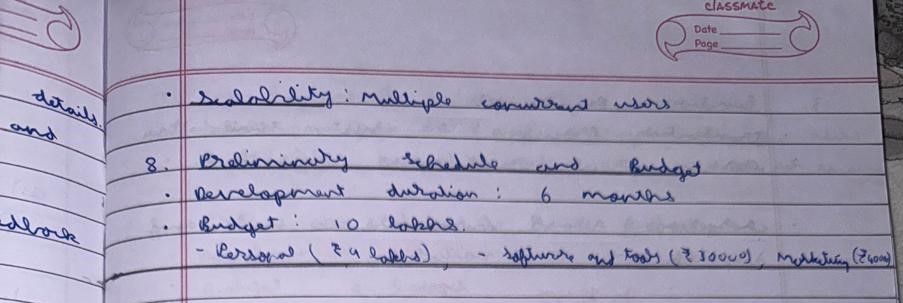 classmate
Date
Page
details.
and
• Scalability : Multiple concurrent users
8. Preliminary schedule and Budget
• Development duration : 6 months
dback
• Budget : 10 lakhs.
- Personal (₹9 lakhs), - software and tools (₹30000), Marketing (₹4000)